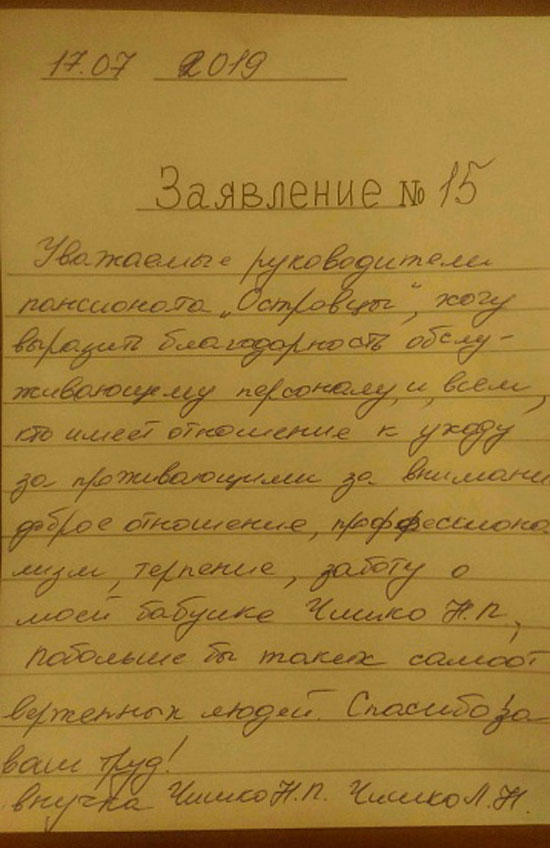 17.07 2019
Заявление № 15
Уважаемые руководители
пансионата „Островцы", хочу
выразить благодарность обслу-
живающему персоналу, и, всем,
кто имеет отношение к уходу
за проживающими за внимани
доброе отношение, проффессиона
лизм, терпение, заботу о
моей бабушке Чишко Н.П.,
побольше бы таких самоот
верженных людей. Спасибо за
ваш труд!
внучка Чишко Н.П. Чишко Л.Н.